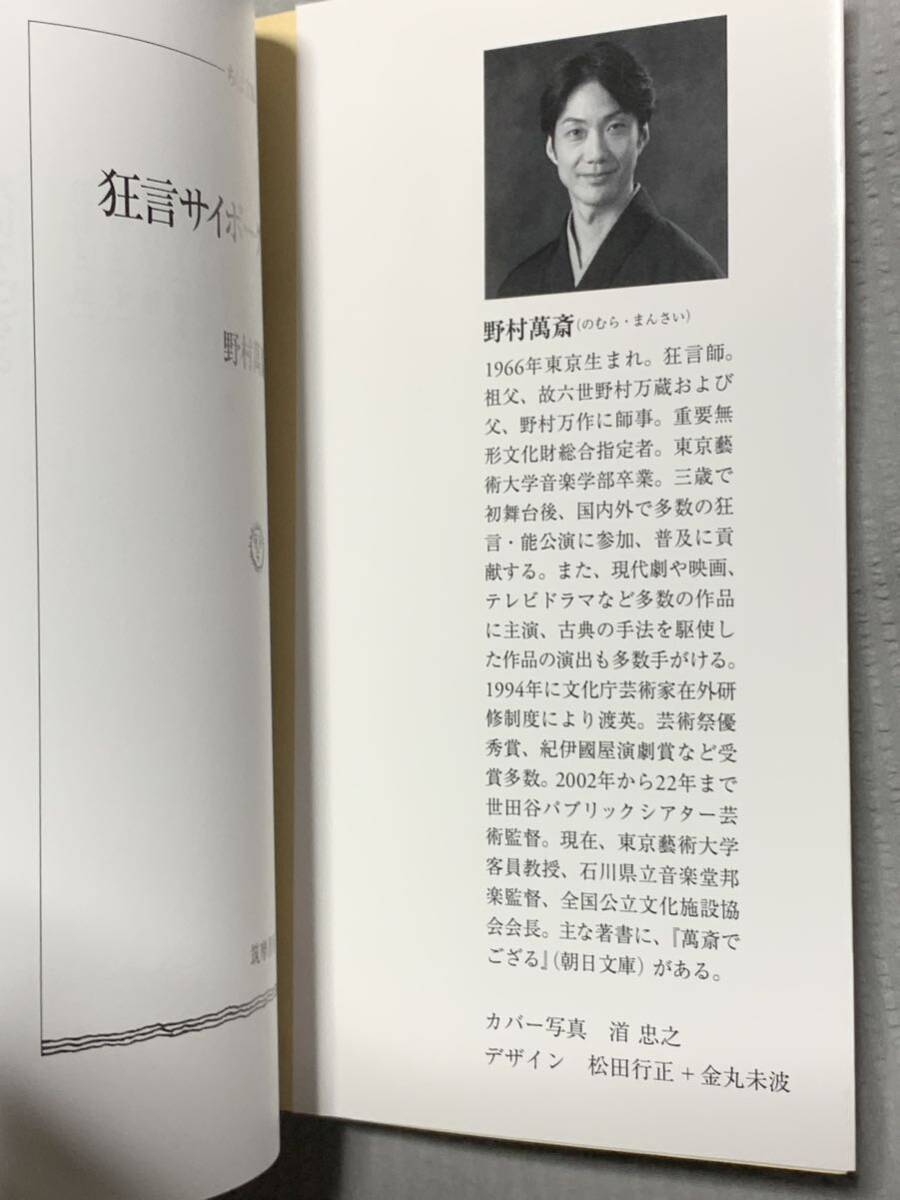 狂言サイボー
野村萬
野村萬斎(のむら・まんさい)
1966年東京生まれ。狂言師。
祖父、故六世野村万蔵および
父、野村万作に師事。重要無
形文化財総合指定者。東京藝
術大学音楽学部卒業。三歳で
初舞台後、国内外で多数の狂
言・能公演に参加、普及に貢
献する。また、現代劇や映画、
テレビドラマなど多数の作品
に主演、古典の手法を駆使し
た作品の演出も多数手がける。
1994年に文化庁芸術家在外研
修制度により渡英。芸術祭優
秀賞、紀伊國屋演劇賞など受
賞多数。2002年から22年まで
世田谷パブリックシアター芸
術監督。現在、東京藝術大学
客員教授、石川県立音楽堂邦
楽監督、全国公立文化施設協
会会長。主な著書に、『萬斎で
ござる』(朝日文庫)がある。
カバー写真 渞 忠之
デザイン 松田行正+金丸未波